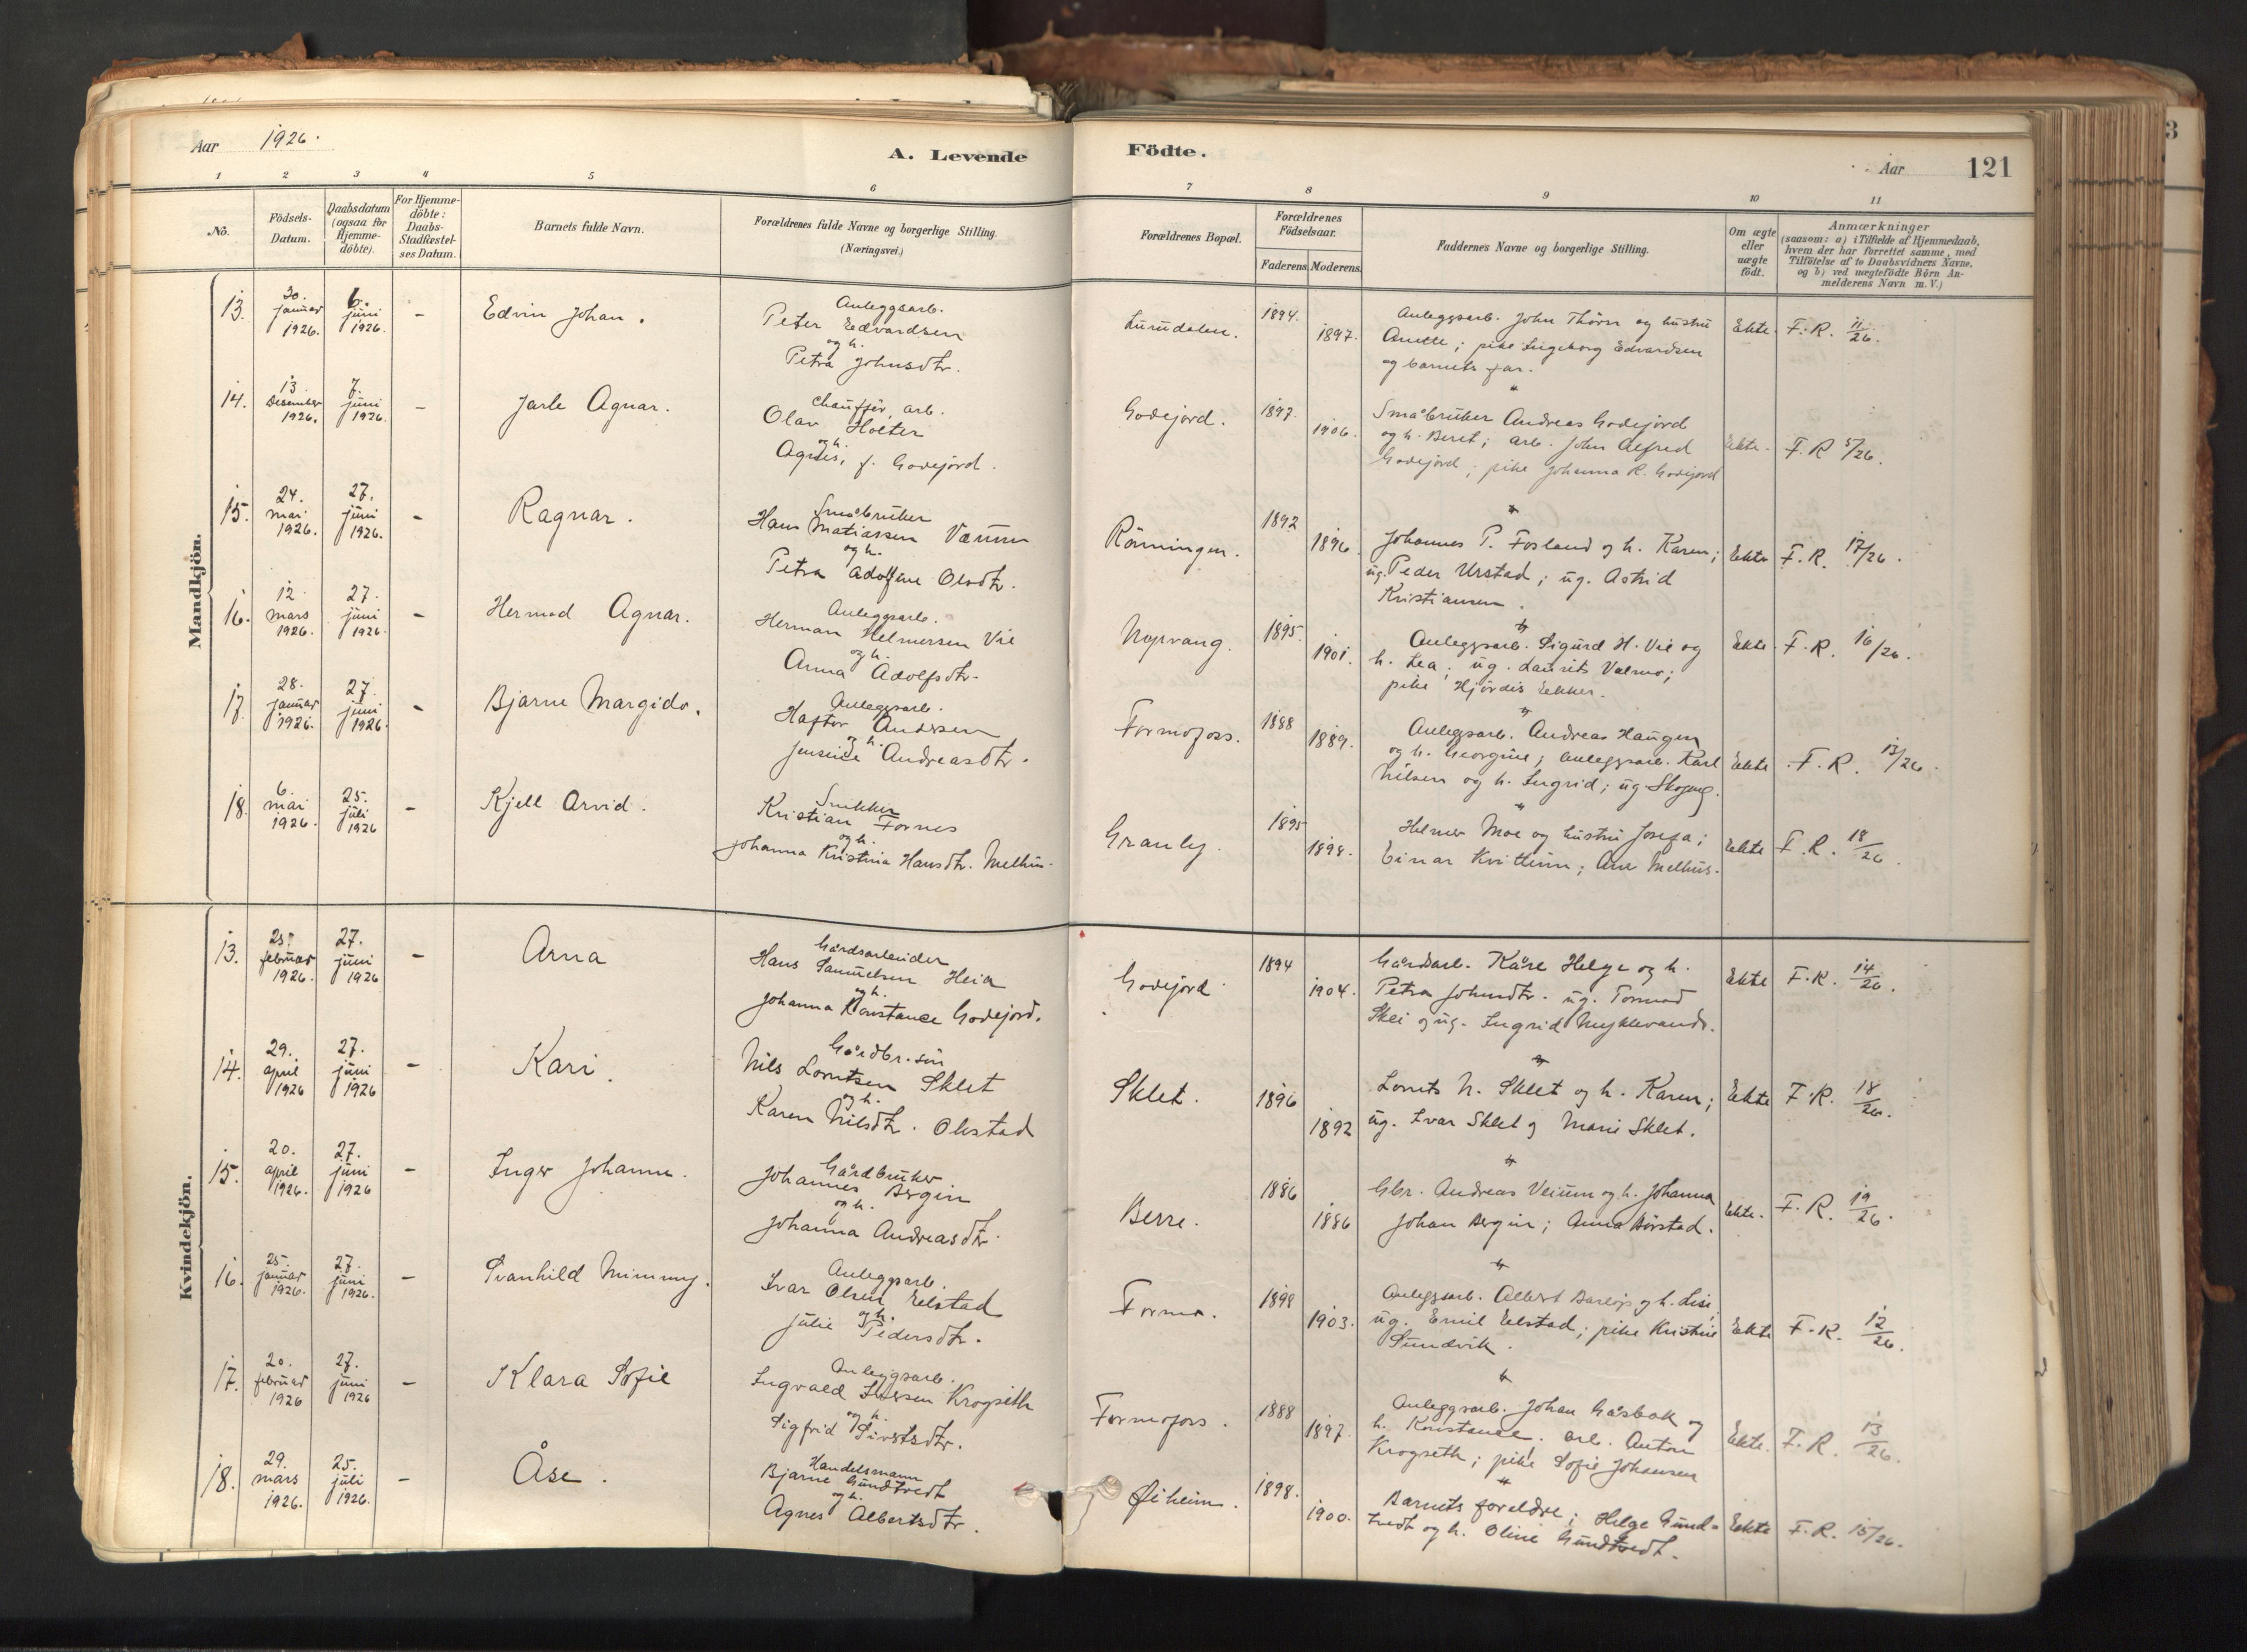 Aar 1926.
A. Levende
Födte.
Aar
121
1 2 3 4 5 6 7 8 9 10 11
No.
Födsels-
Datum.
Daabsdatum
(ogsaa for
Hjemme-
döbte).
For Hjemme-
döbte:
Daabs-
Stadfæstel-
ses Datum.
Barnets fulde Navn.
Forældrenes fulde Navne og borgerlige Stilling.
(Næringsvei.)
Forældrenes Bopæl.
Forældrenes
Födselsaar.
Faderens. Moderens.
Faddernes Navne og borgerlige Stilling.
Om ægte
eller
uægte
födt.
Anmærkninger
(saasom: a) i Tilfælde af Hjemmedaab,
hvem der har forrettet samme, med
Tilföielse af to Daabsvidners Navne,
og b) ved uægtefödte Börn An-
melderens Navn m. V.)
Mandkjön.
13.
30.
januar
1926.
6.
juni
1926.
-
Edvin Johan.
Anleggsarb.
Peter Edvardsen
og h.
Petra Johnsdtr.
Lurudalen.
1894.
1897.
Anleggsarb. John Thörn og hustru
Anette; pike Ingeborg Edvardsen
og barnets far.
Ekte.
F. R. 11/26.
14.
13.
Desember
1926.
7.
juni
1926.
-
Jarle Agnar.
Chaufför, arb.
Olav Holter
og h.
Agnes, f. Godejord.
Godejord.
1897.
1906.
Småbruker Andreas Godejord
og h. Beret; arb. John Alfred
Godejord; pike Johanna R. Godejord
Ekte.
F. R 5/26.
15.
24.
mai
1926.
27.
juni
1926.
-
Ragnar.
Småbruker
Hans Matiassen
og h.
Petra Adolfine Olsdtr.
Rönningen.
1892
1896.
Johannes P. Fosland og h. Karen;
ug. Peder Urstad; ug. Astrid
Kristiansen.
Ekte
F. R. 17/26.
16.
12.
mars
1926.
27.
juni
1926.
-
Hermod Agnar.
Anleggsarb.
Herman Helmersen Vie
og h.
Anna Adolfsdtr.
1895.
1901.
Anleggsarb. Sigurd H. Vie og
h. Lea; ug. Laurits Valmo;
pike Hjördis Ekker.
Ekte.
F. R. 16/26.
17.
28.
januar
1926.
27.
juni
1926.
-
Bjarne Margido.
Anleggsarb.
Haftor Andersen
og h.
Jensine Andreasdtr.
Formofoss.
1888
1889.
Anleggsarb. Andreas Haugen
og h. Georgine; anleggsarb. Karl
Nilsen og h. Ingrid; ug
Ekte
F. R. 13/26.
18.
6.
mai
1926.
25.
juli
1926
-
Kjell Arvid.
Snekker
Kristian Fornes
og h.
Johanna Kristina Hansdtr. Melhus.
Granly.
1895
1898.
Helmer Moe og hustru Josefa;
Einar Kvittum; Are Melhus.
Ekte
F. R. 18/26.
Kvindekjön.
13.
25.
februar
1926.
27.
juni
1926
-
Arna
Gårdsarbeider
Hans Samuelsen Heia
og h.
Johanna Konstance Godejord.
Godejord
1894
1904.
Gårdsarb. Kåre Helge og h.
Petra Johnsdtr. ug. Tormod
Skei og ug. Ingrid
Ekte
F. R. 14/26.
14.
29.
april
1926
27.
juni
1926
-
Kari.
Gårdbr. sön
Nils Lorntsen Sklet
og h.
Karen Nilsdtr. Olestad
Sklet.
1896
1892
Lornts N. Sklet og h. Karen;
ug. Ivar Sklet og Marie Sklet.
Ekte
F. R. 18/26.
15.
20.
april
1926.
27.
juni
1926
-
Inger Johanne.
Gårdbruker
Johannes Bergin
og h.
Johanna Andreasdtr.
Berre.
1886
1886
Gbr. Andreas Veium og h. Johanna
Johan Bergin; Anna Börstad.
Ekte.
F. R. 19/26.
16.
25.
januar
1926.
27.
juni
1926.
-
Svanhild Mimmy.
Anleggsarb.
Ivar Olsen Eilstad
og h.
Julie Pedersdtr.
Formo.
1898
1903.
Anleggsarb. Albert og h. Lise;
ug. Emil Eelstad; pike Kristine
Sundvik.
Ekte
F. R. 12/26.
17.
20.
februar
1926
27.
juni
1926
-
Klara Sofie
Anleggsarb.
Ingvald Iversen Krogseth
og h.
Sigfrid Sivertsdtr.
Formofoss.
1888
1897.
Anleggsarb. Johan Gåsbak og
h. Konstance. arb. Anton
Krogseth; pike Sofie Johansen
Ekte.
F. R. 13/26.
18.
29.
mars
1926.
25.
juli
1926.
-
Åse.
Handelsmann
Bjarne Gundtvedt
og h.
Agnes Albertsdtr.
Öiheim.
1898.
1900.
Barnets foreldre; Helge Gund-
tvedt og h. Oline Gundtvedt.
Ekte
F. R. 15/26.